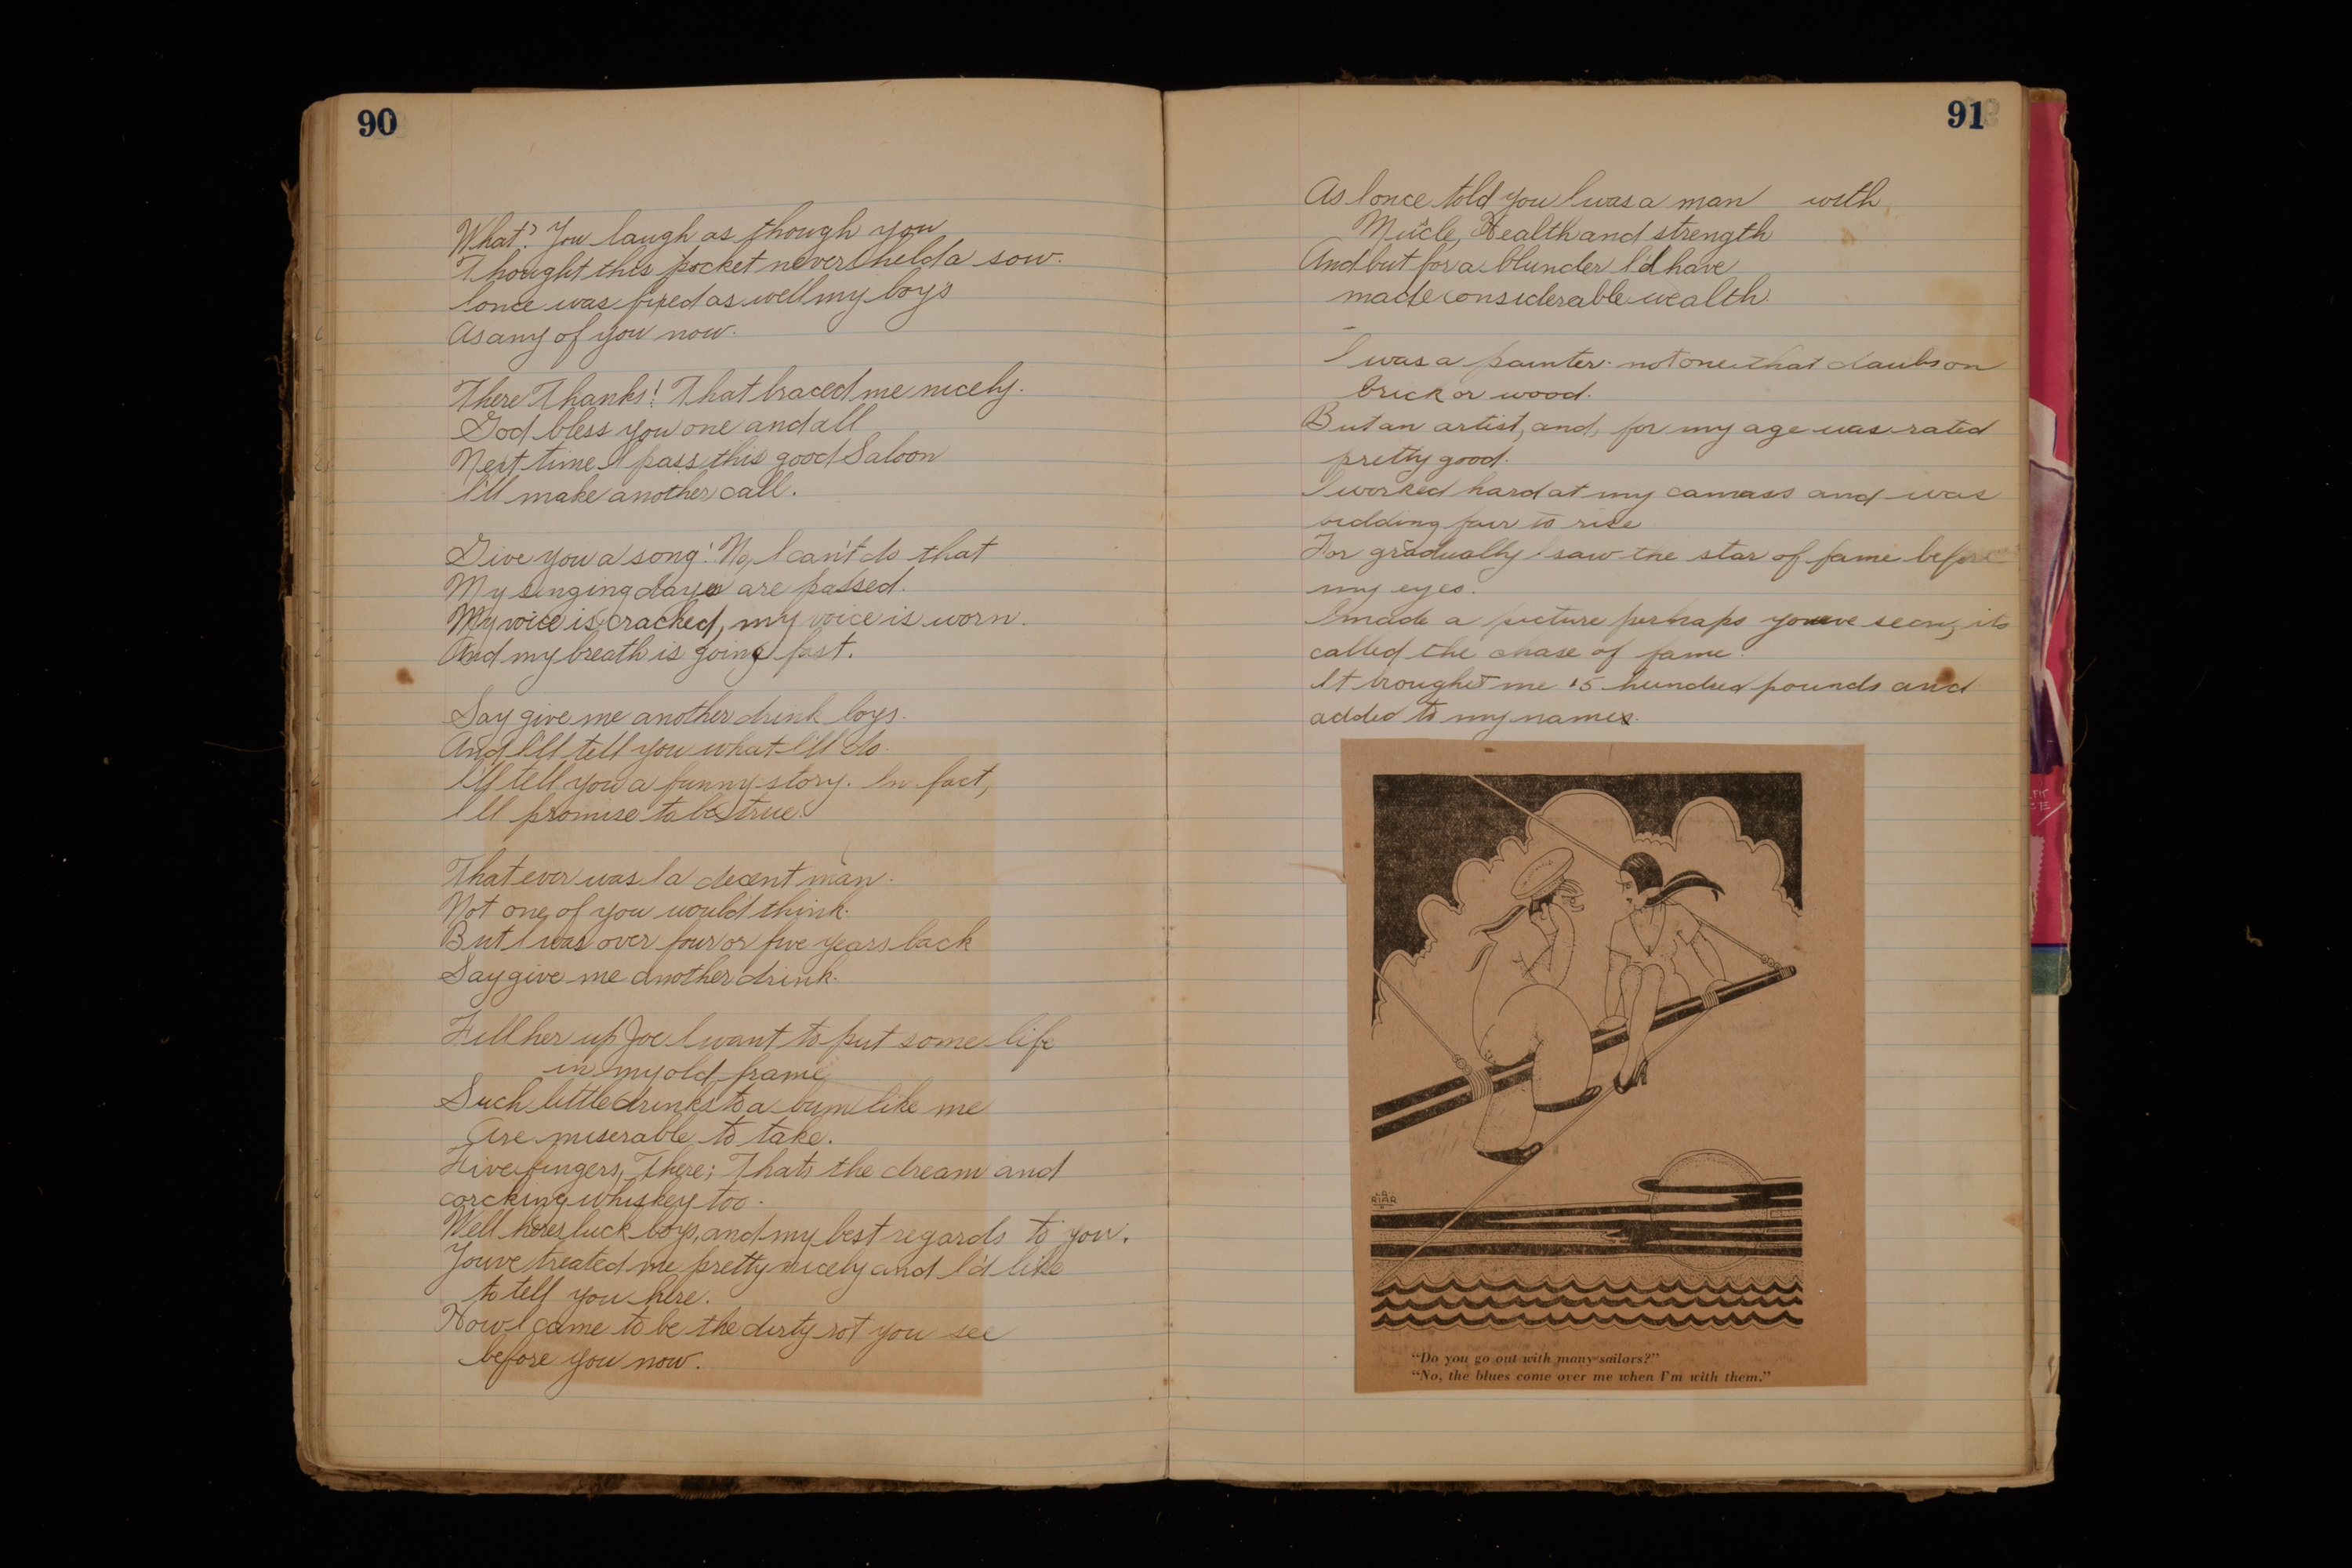 90
What? You laugh as though you
Thought this pocket never held a sow.
I once was fixed as well my boys
As any of you now.
There Thanks! That braced me nicely.
God bless you one and all
Next time I pass this good Saloon
I'll make another call.
Give you a song! No, I can't do that
My singing days are passed.
My voice is cracked, my voice is worn.
And my breath is going fast.
Say give me another drink boys.
And I'll tell you what I'll do.
I'll tell you a funny story. In fact,
I'll promise to be true.
That ever was I a decent man.
Not one of you would think.
But I was over four or five years back
Say give me another drink.
Fill her up Joe I want to put some life
in my old frame
Such little drinks to a bum like me
Are miserable to take.
Five fingers, There; Thats the dream and
corcking whiskey too.
Well heres luck boys, and my best regards to you.
Youve treated me pretty nicely and I'd like
to tell you here.
How I came to be the dirty sot you see
before you now.
91
As I once told you I was a man with
Mucle, Health and strength
And but for a blunder I'd have
made considerable wealth.
I was a painter. not one that daubs on
brick or wood.
But an artist, and, for my age was rated
pretty good.
I worked hard at my canvass and was
bidding fair to rise
For gradually I saw the star of fame before
my eyes.
I made a picture perhaps youve seen, its
called the chase of fame.
It brought me 15 hundred pounds and
added to my name.
"Do you go out with many sailors?"
"No, the blues come over me when I'm with them."